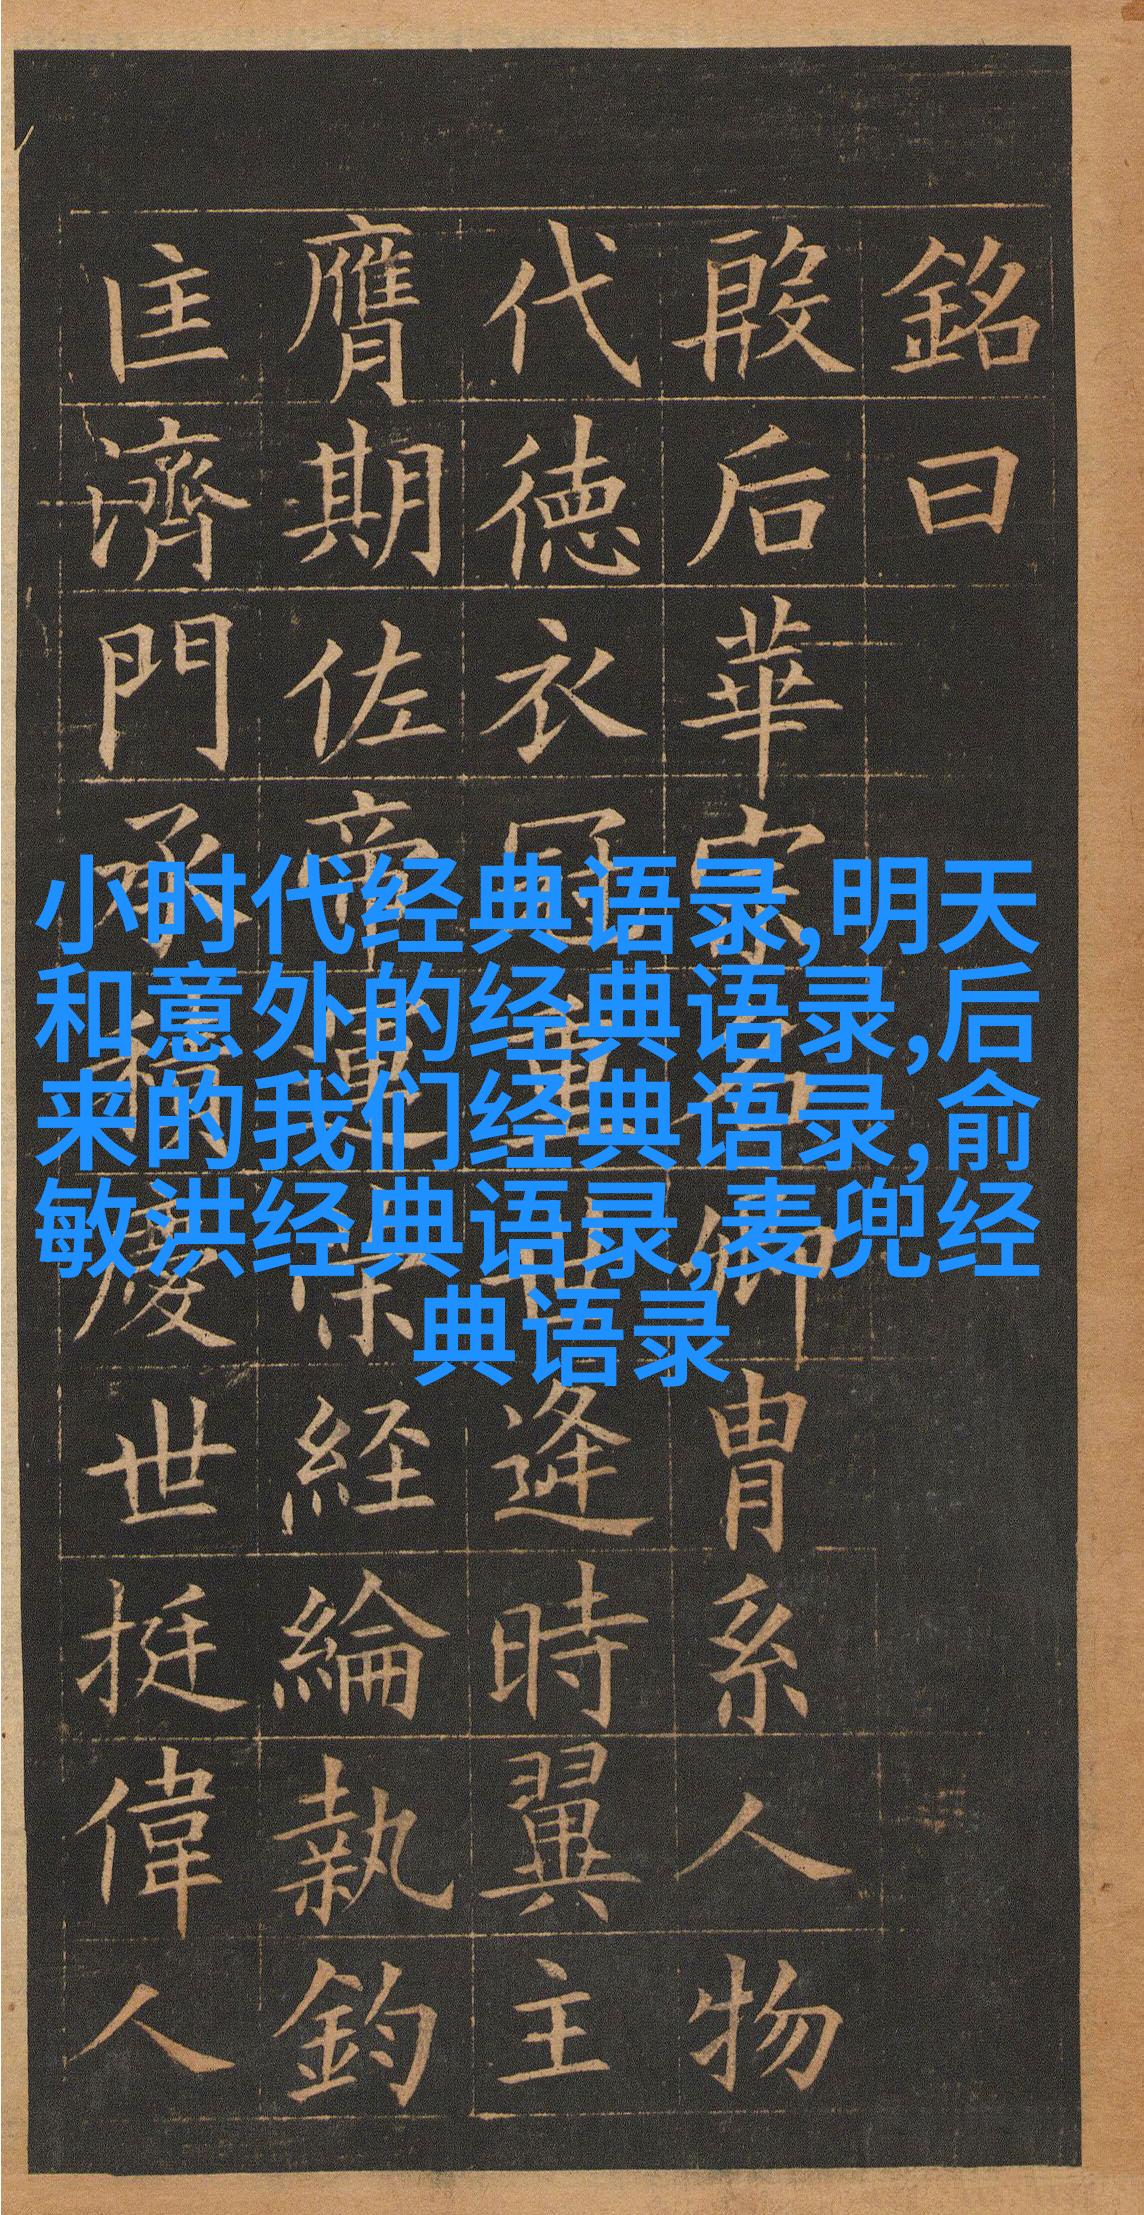 銘曰
殷后華宗名卿胄系人物
代德衣冠重世逢時翼主
膺期佐帝運經綸執鈞
匡濟門承積慶世挺偉人
小时代经典语录,明天
和意外的经典语录,后
来的我们经典语录,俞
敏洪经典语录,麦兜经
典语录